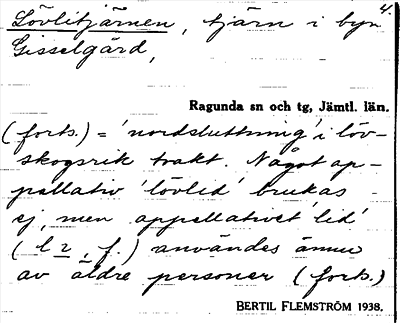 4.
Lövlitjärnen, tjärn i byn
Gisselgård,
Ragunda sn och tg, Jämtl. län.
(forts.) = 'nordsluttning' i löv-
skogsrik trakt. Något ap-
pellativ 'lövlid' brukas
ej, men appellativet 'lid'
(l , f.) användes ännu
av äldre personer (forts.)
BERTIL FLEMSTRÖM 1938.